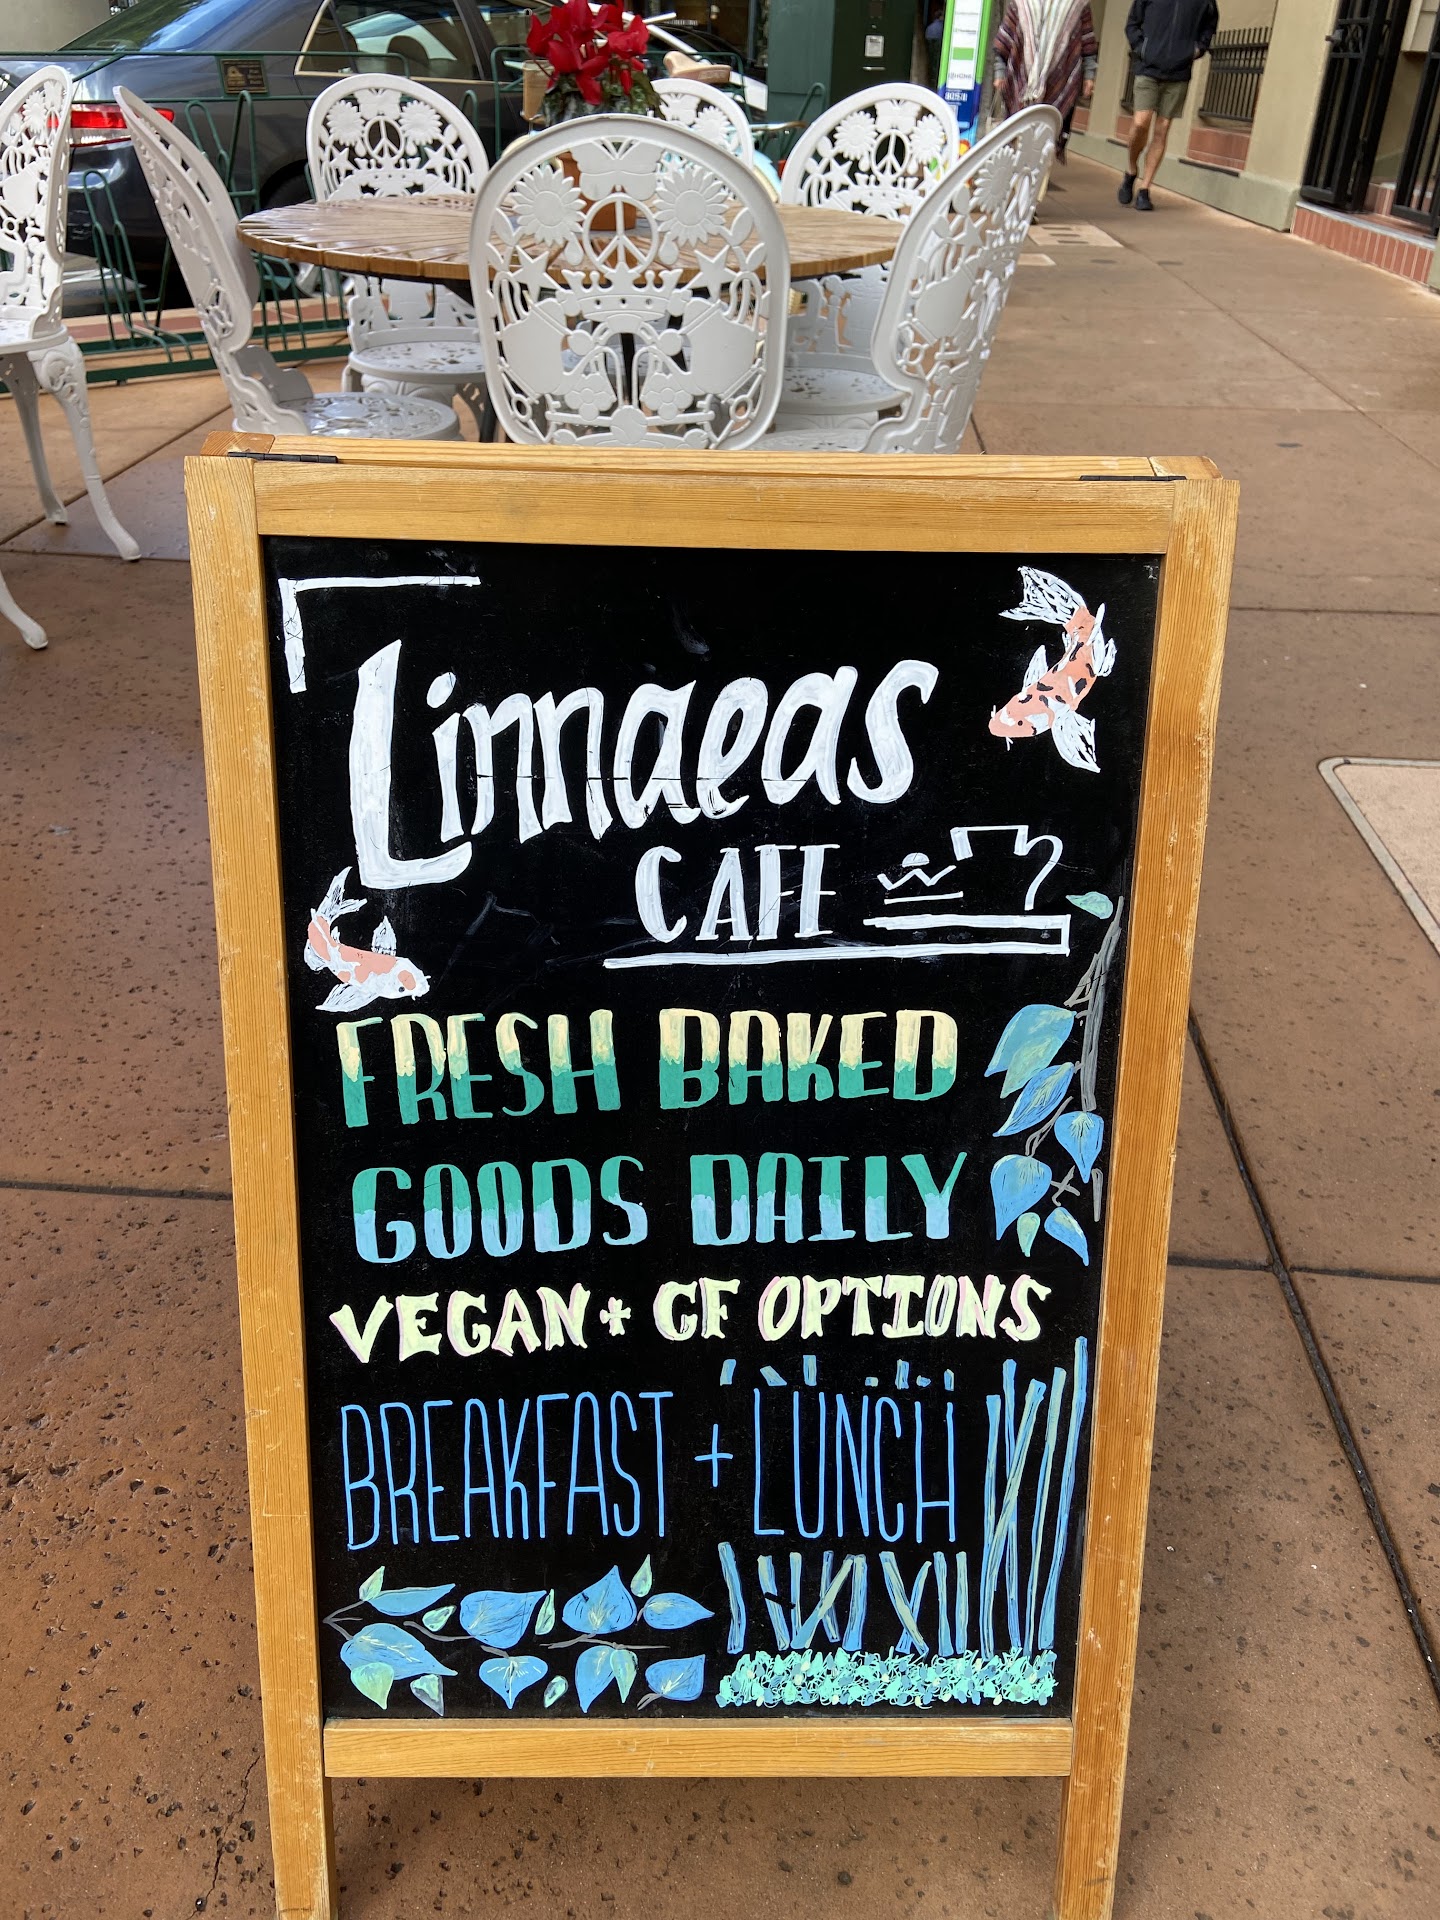 Linnaeas
CAFE
FRESH BAKED
GOODS DAILY
VEGAN + GF OPTIONS
BREAKFAST + LUNCH